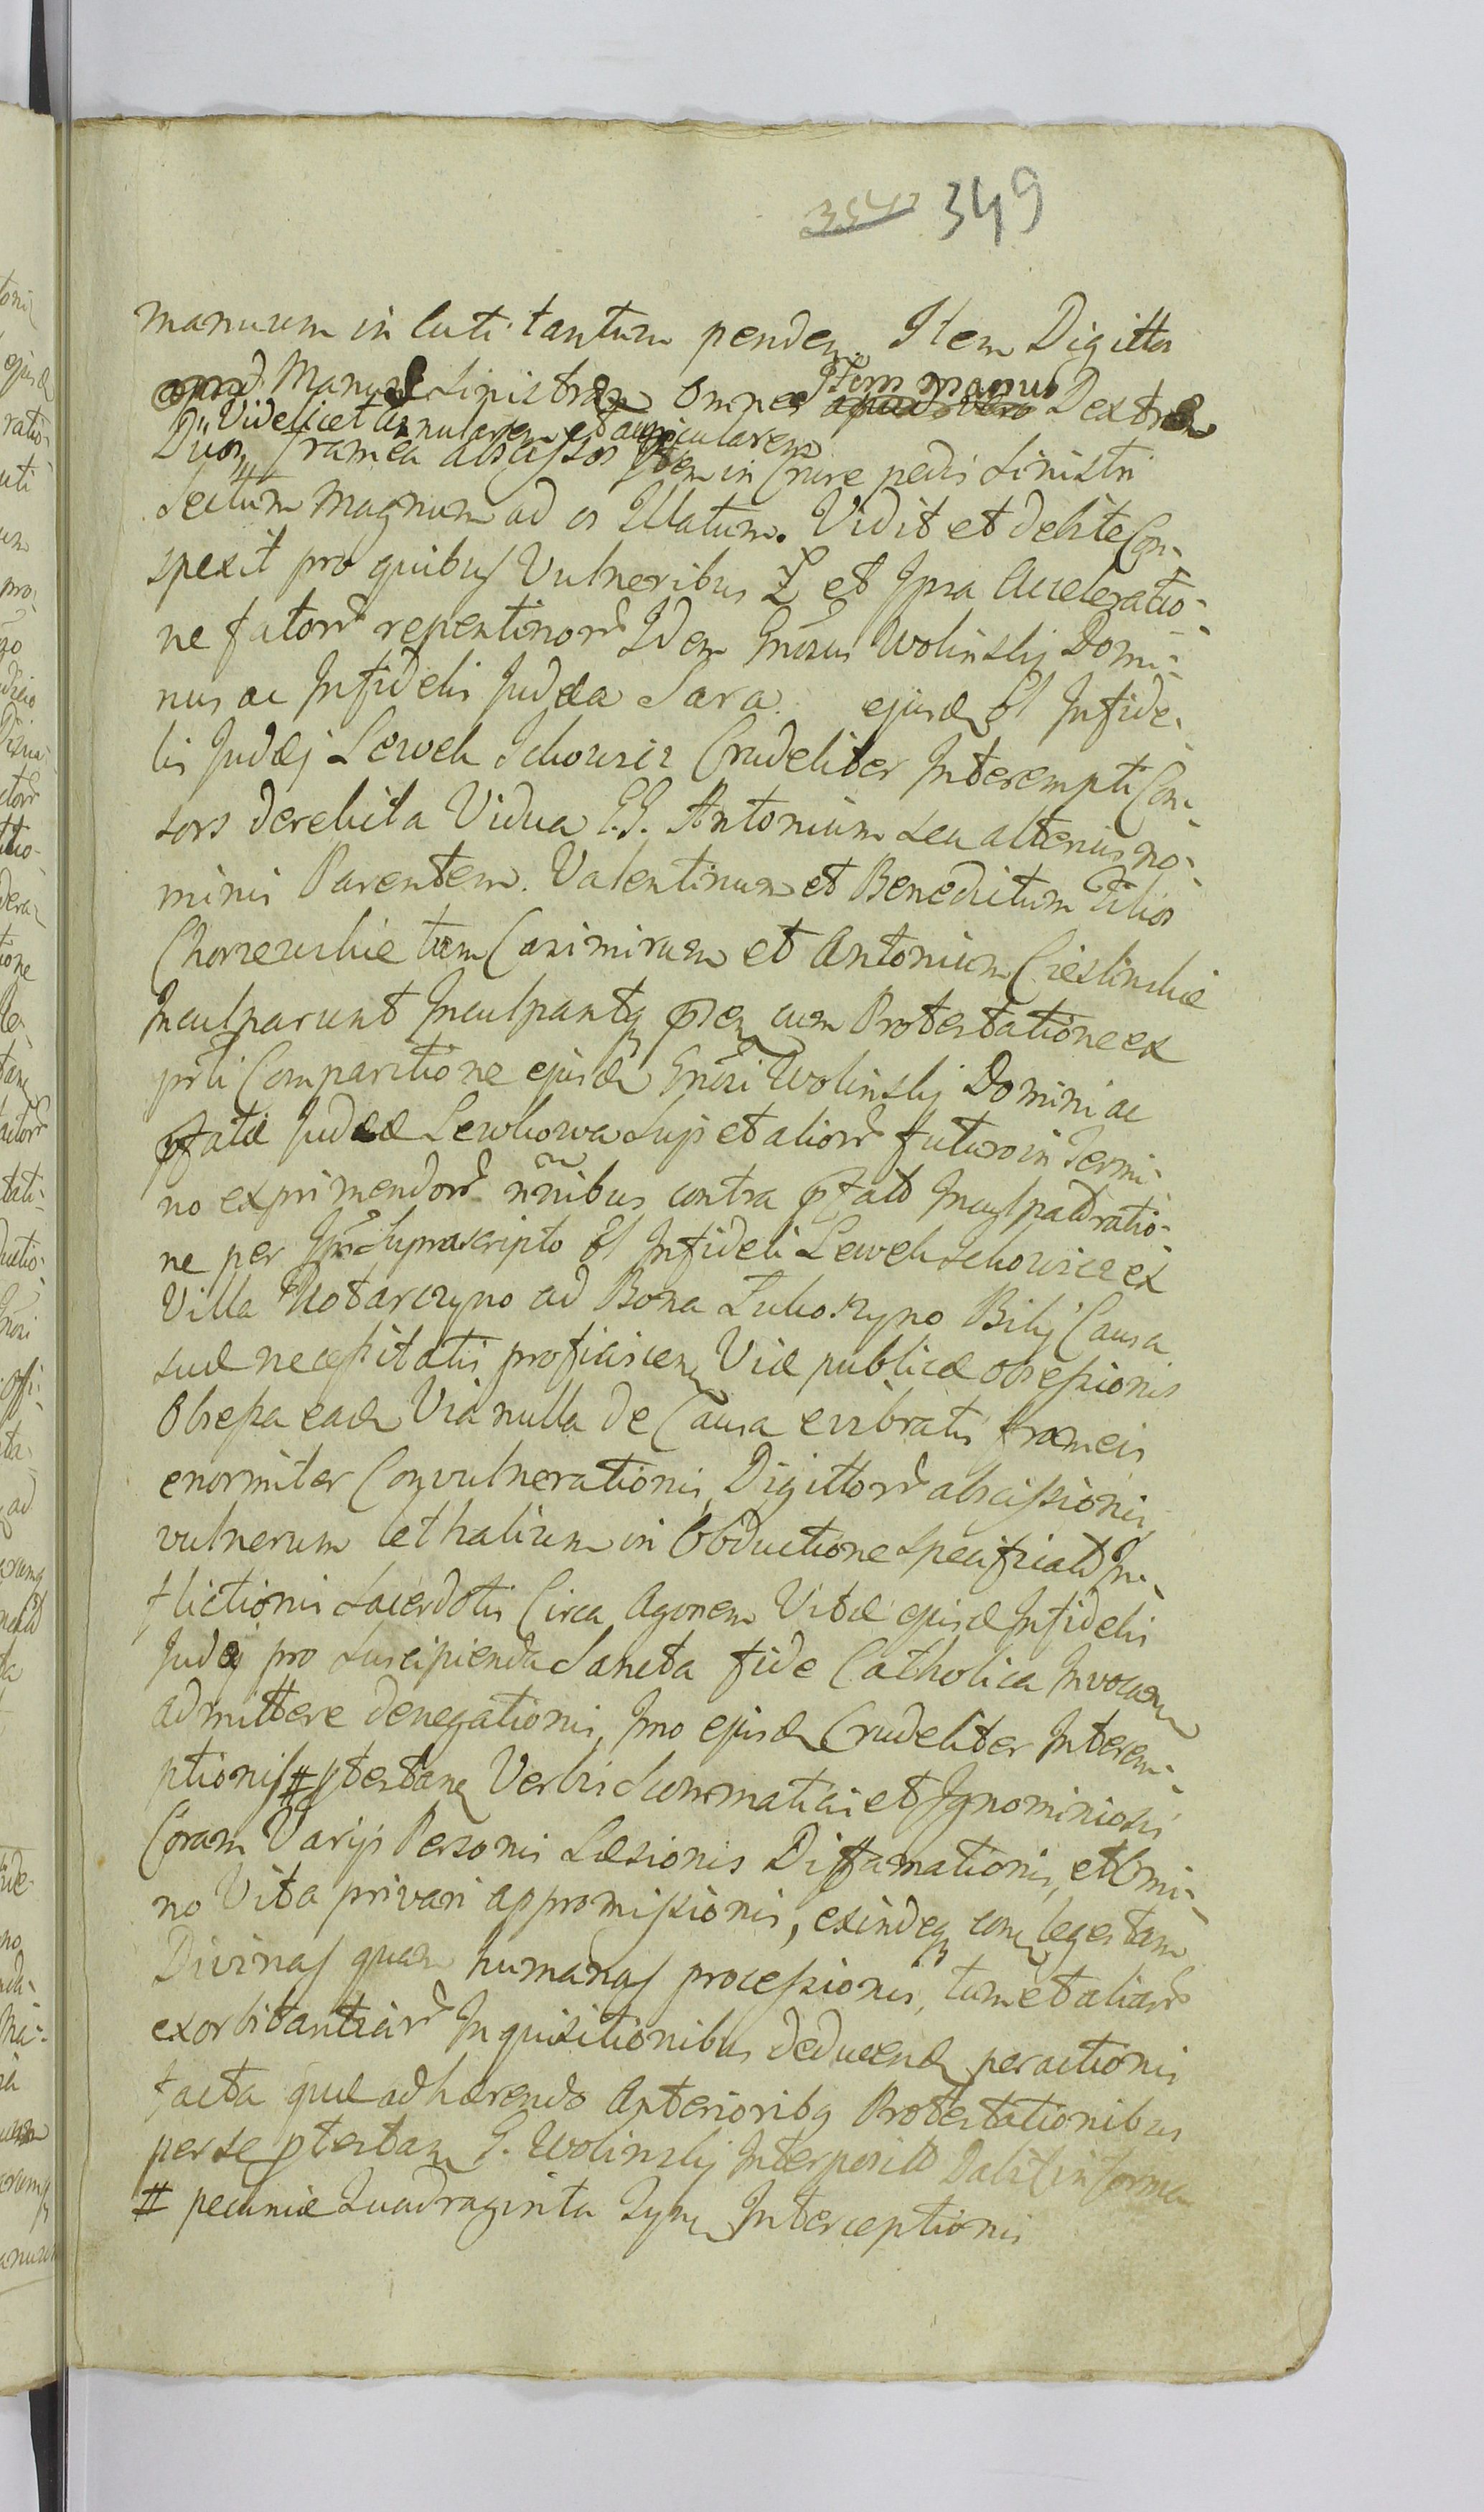 349
manuum in cuti tantum penden Item Digittos
Manus Sinistræ omnes Item manus Dextræ
Videlicet annularem et auricularem
Duos framea abscissos Item in Crure pedis Sinistri
Sectum magnum ad os Illatum. Vidit et debite Con-
spexit pro quibus Vulneribus et Ipsa Acceleratio-
ne fatorr repentinorr Idem Gnosus Wolinskij Domi-
nus ac Infidelis Judæa Sara ejusd Ol Infide-
lis Judæj Lewek Ickowicz Crudeliter Interempti Con-
sors derelicta Vidua G.G. Antonium seu alterius no-
minis Parentem. Valentinum et Benedictum Filios
Chorzewskie tum Casimirum et Antonium Cieslinskie
Inculparunt Inculpantq cum Protestatione ex
prti Comparitione ejusd Gnosi Wolinskij Domini ac
pfatæ Judææ Lewkowa Suis et aliorr futuro in Termi-
no exprimendorr nnibus contra pfatos Inculpatos ratio-
ne per Ipso Suprascripto Ol Infideli Lewek Ickowicz ex
Villa Notarczyno ad Bona Lukoszyno Bilij Causa
suæ necessitatis proficiscen Viæ publicæ obsessionis
Obsessa ead Via nulla de Causa evibratis frameis
enormiter Convulnerationis, Digittorr abscissionis,
vulnerum lethalium in Obductione specificatorr In-
flictionis Sacerdotis Circa Agonem Vitæ ejusd Infidelis
Judæj pro suscipienda Sancta fide Catholica Invocan
admittere denegationis, Imo ejusd Crudeliter Interem-
ptionis # ptestane Verbis Summaticis et Ignominiosis
Coram Varijs Personis Læsionis Diffamationis, et Omi-
no Vita privari appromissionis, exindeq con leges tam
Divinas quam humanas processionis, tum et aliarr
exorbitantiarr Inquisitionibus deducend peractionis
facta quæ adhærendo Anterioribq Protestationibus
per se ptestan G. Wolinskij Interpositis Dabit in forma
# pecuniæ Quadraginta Tymf Interceptionis